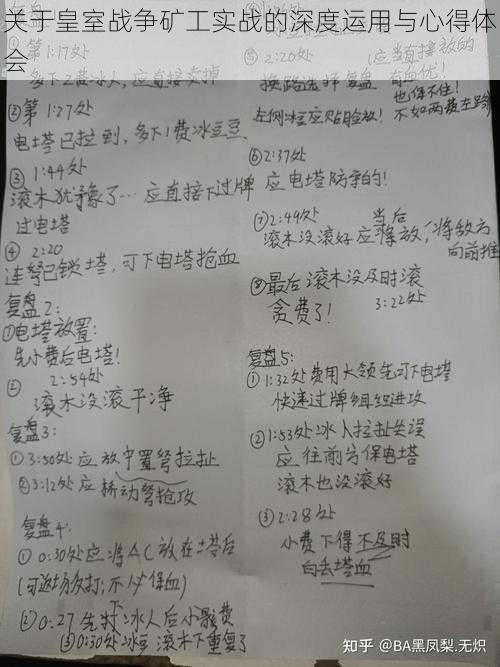 关于皇室战争矿工实战的深度运用与心得体
会
第1:17处
多下2费冰人,应直接卖掉
②第1:27处
电塔已拉到,多下1费冰豆豆
③ 1:44处
滚木犹豫了…应直接下过牌
过电塔
④ 2:20
连弩已锁塔,可下电塔抢血
复盘2:
①电塔放置:
先小费后电塔!
② 2:54处
滚木没滚干净
复盘3:
①3:50处应放中置弩拉扯
②3:12处应桥动弩抢攻
复盘4:
①0:30处应将AC放在塔后
(可远打近打,不人保血)
②0:27先打冰人后小骷费
③0:30处冰豆滚木下重复了
应当直接放的
有血优!
也保不住!
不如两薇左路
换路选择复盘
左侧冰豆应贴脸放!
⑥2:37处
应电塔防守的!
⑦2:49处
当后
滚木没滚好应将放,将敌方
向前推
⑧最后滚木没及时滚
贪费了!
3:22处
复盘5:
①1:32处费用大领先可下电塔
快速过牌组织进攻
②1:53处冰人拉扯失误
应往前方保电塔
滚木也没滚好
③2:28处
小费下得不及时
白丢塔血
知乎 @BA黑凤梨.无炽